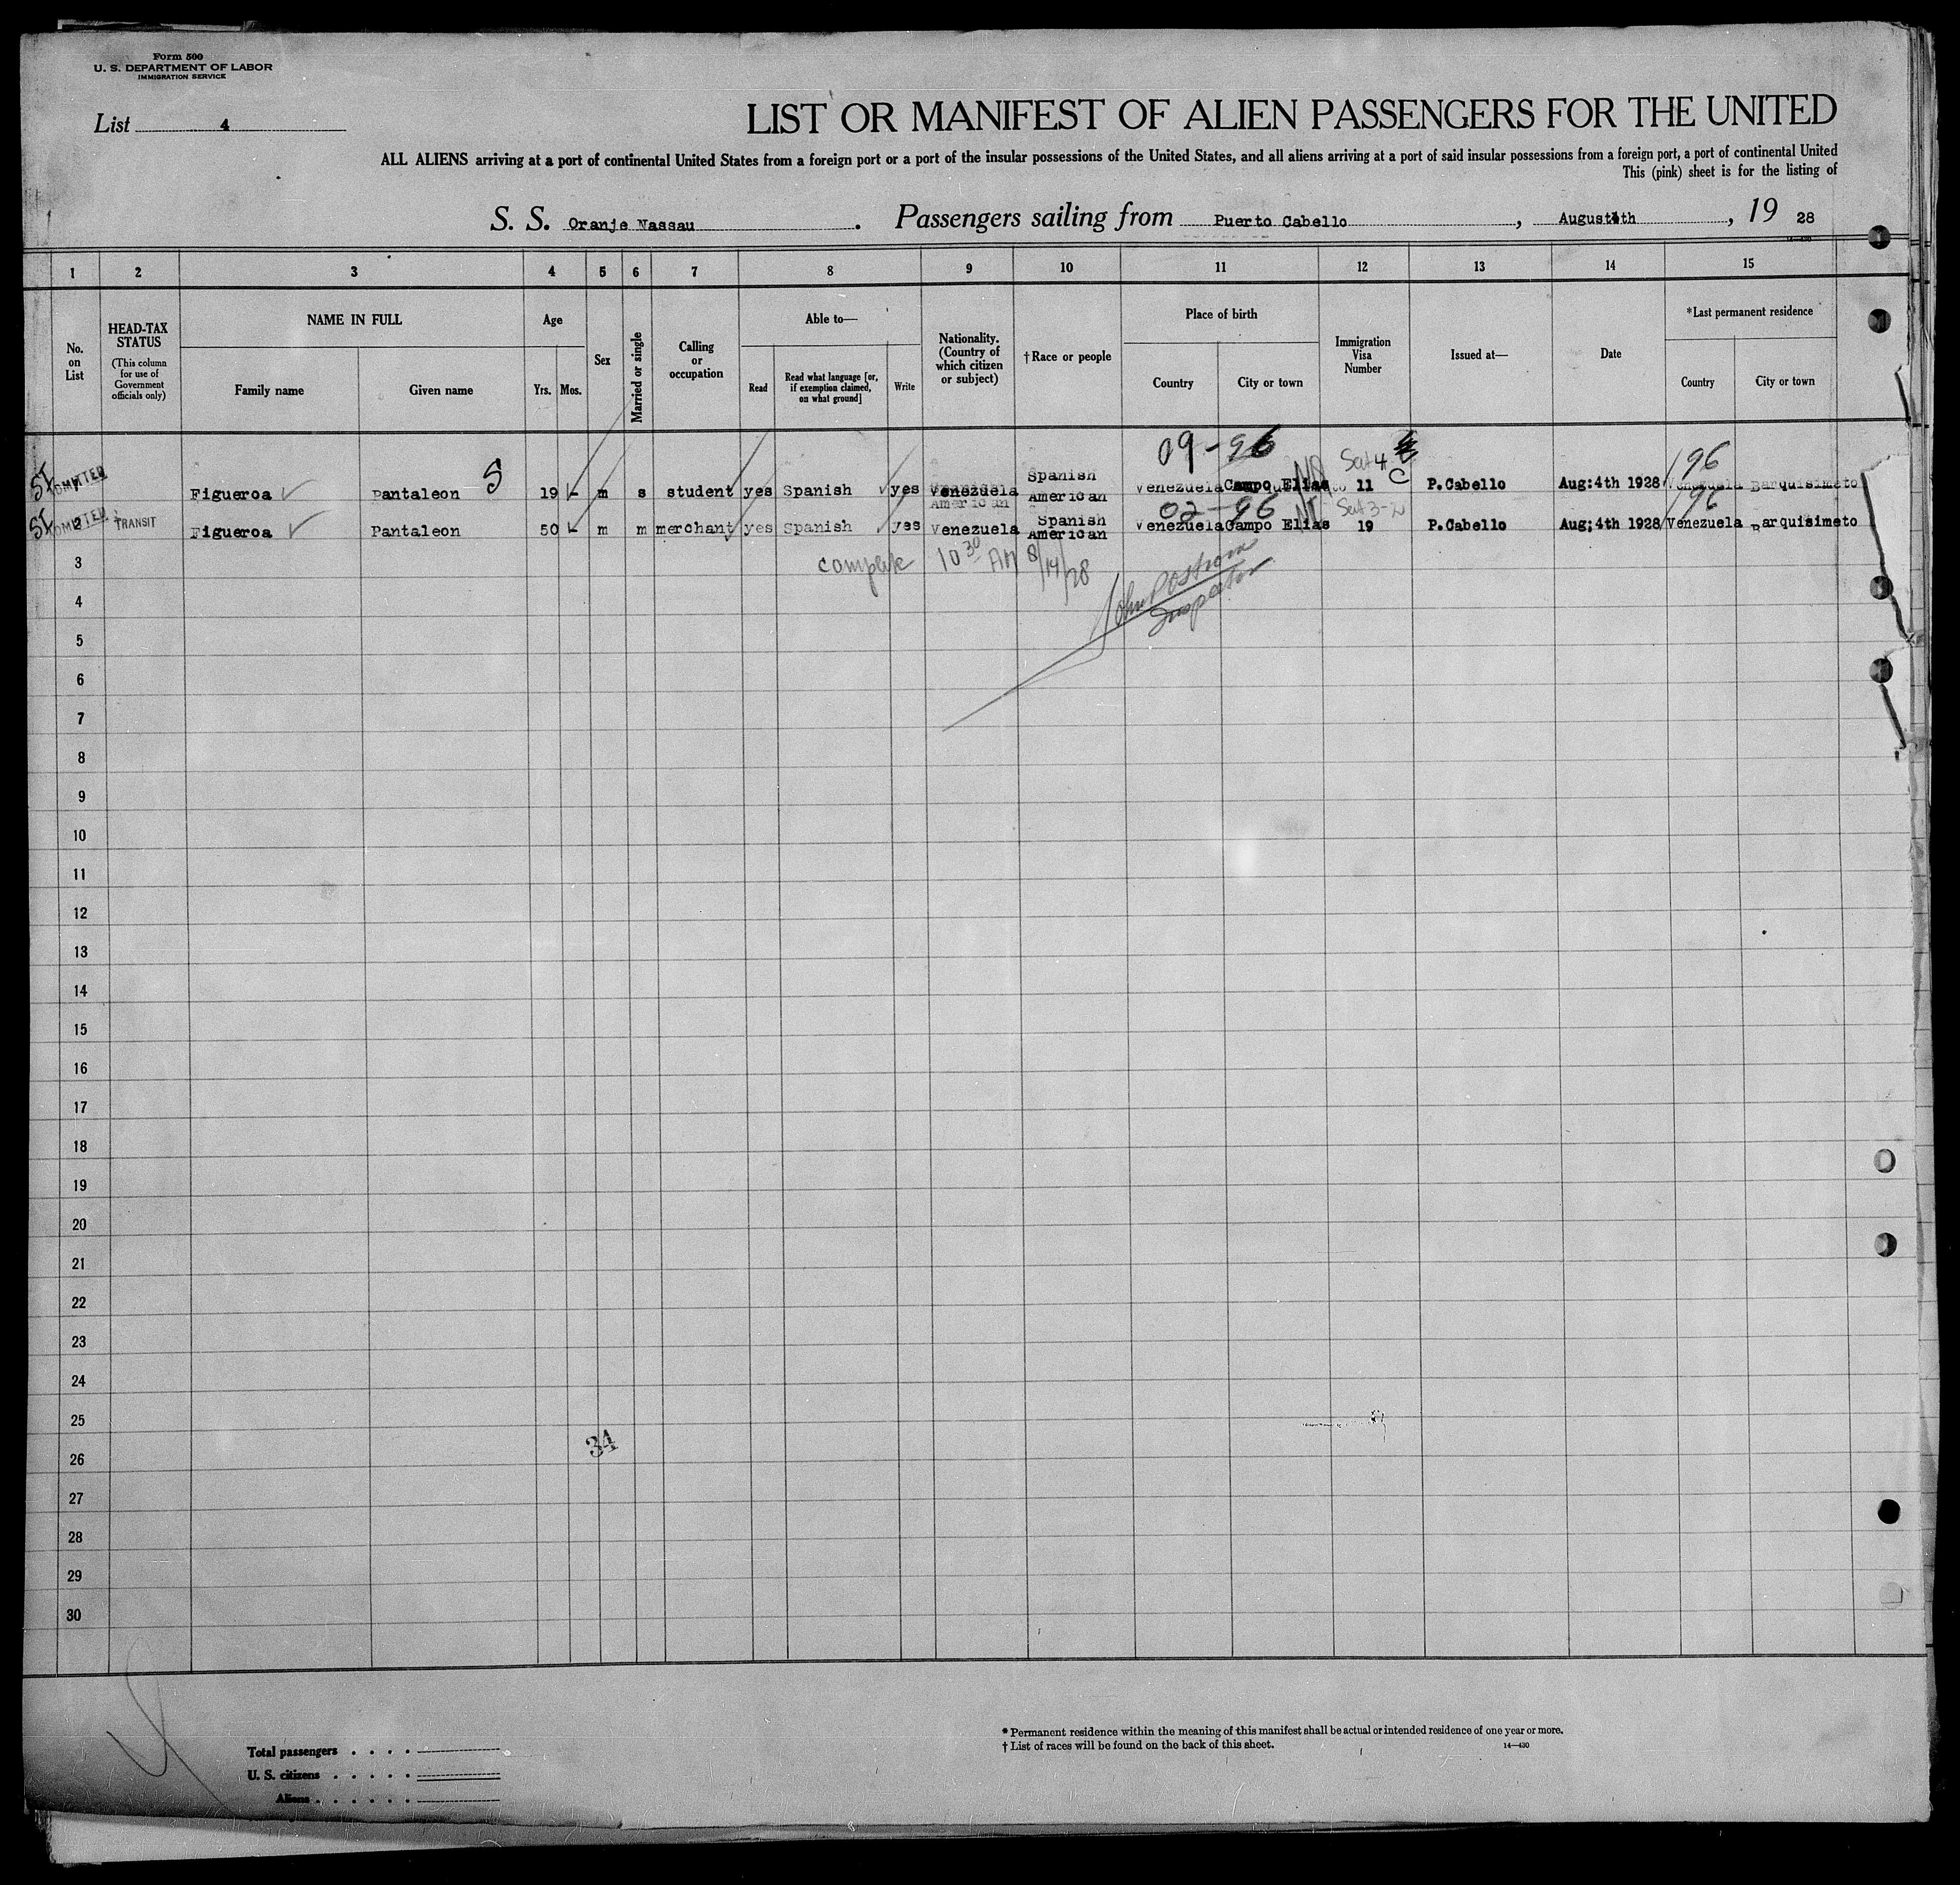 Form 500
U. S. DEPARTMENT OF LABOR
IMMIGRATION SERVICE
List 4
LIST OR MANIFEST OF ALIEN PASSENGERS FOR THE UNITED
ALL ALIENS arriving at a port of continental United States from a foreign port or a port of the insular possessions of the United States, and all aliens arriving at a port of said insular possessions from a foreign port, a port of continental United
This (pink) sheet is for the listing of
S. S. Oranje Nassau . Passengers sailing from Puerto Cabello , August 4th , 19 28
1 2 3 4 5 6 7 8 9 10 11 12 13 14 15
No. on List
HEAD-TAX STATUS
(This column for use of Government officials only)
NAME IN FULL
Family name
Given name
Age
Yrs. Mos.
Sex
Married or single
Calling or occupation
Able to—
Read
Read what language [or, if exemption claimed, on what ground]
Write
Nationality. (Country of which citizen or subject)
†Race or people
Place of birth
Country
City or town
Immigration Visa Number
Issued at—
Date
*Last permanent residence
Country
City or town
09-96
96
SI ADMITTED 1 Figueroa Pantaleon S 19 m s student yes Spanish yes Venezuela Spanish American Venezuela Campo Elias 11 C P.Cabello Aug:4th 1928 Venezuela Barquisimeto
02-96
96
Sec 3-2
SI ADMITTED 2 TRANSIT Figueroa Pantaleon 50 m m merchant yes Spanish yes Venezuela Spanish American Venezuela Campo Elias 19 P.Cabello Aug;4th 1928 Venezuela Barquisimeto
3
complete 10 30 AM 8/14/28
Inspector
4
5
6
7
8
9
10
11
12
13
14
15
16
17
18
19
20
21
22
23
24
25
34
26
27
28
29
30
* Permanent residence within the meaning of this manifest shall be actual or intended residence of one year or more.
† List of races will be found on the back of this sheet.
14—430
Total passengers . . . .
U. S. citizens . . . . .
Aliens . . . . . .